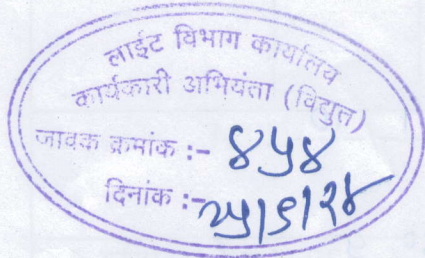 लाईट विभाग कार्यालय
कार्यकारी अभियंता (विद्युत)
जावक क्रमांक :- ४५४
दिनांक :- २५/९/२४